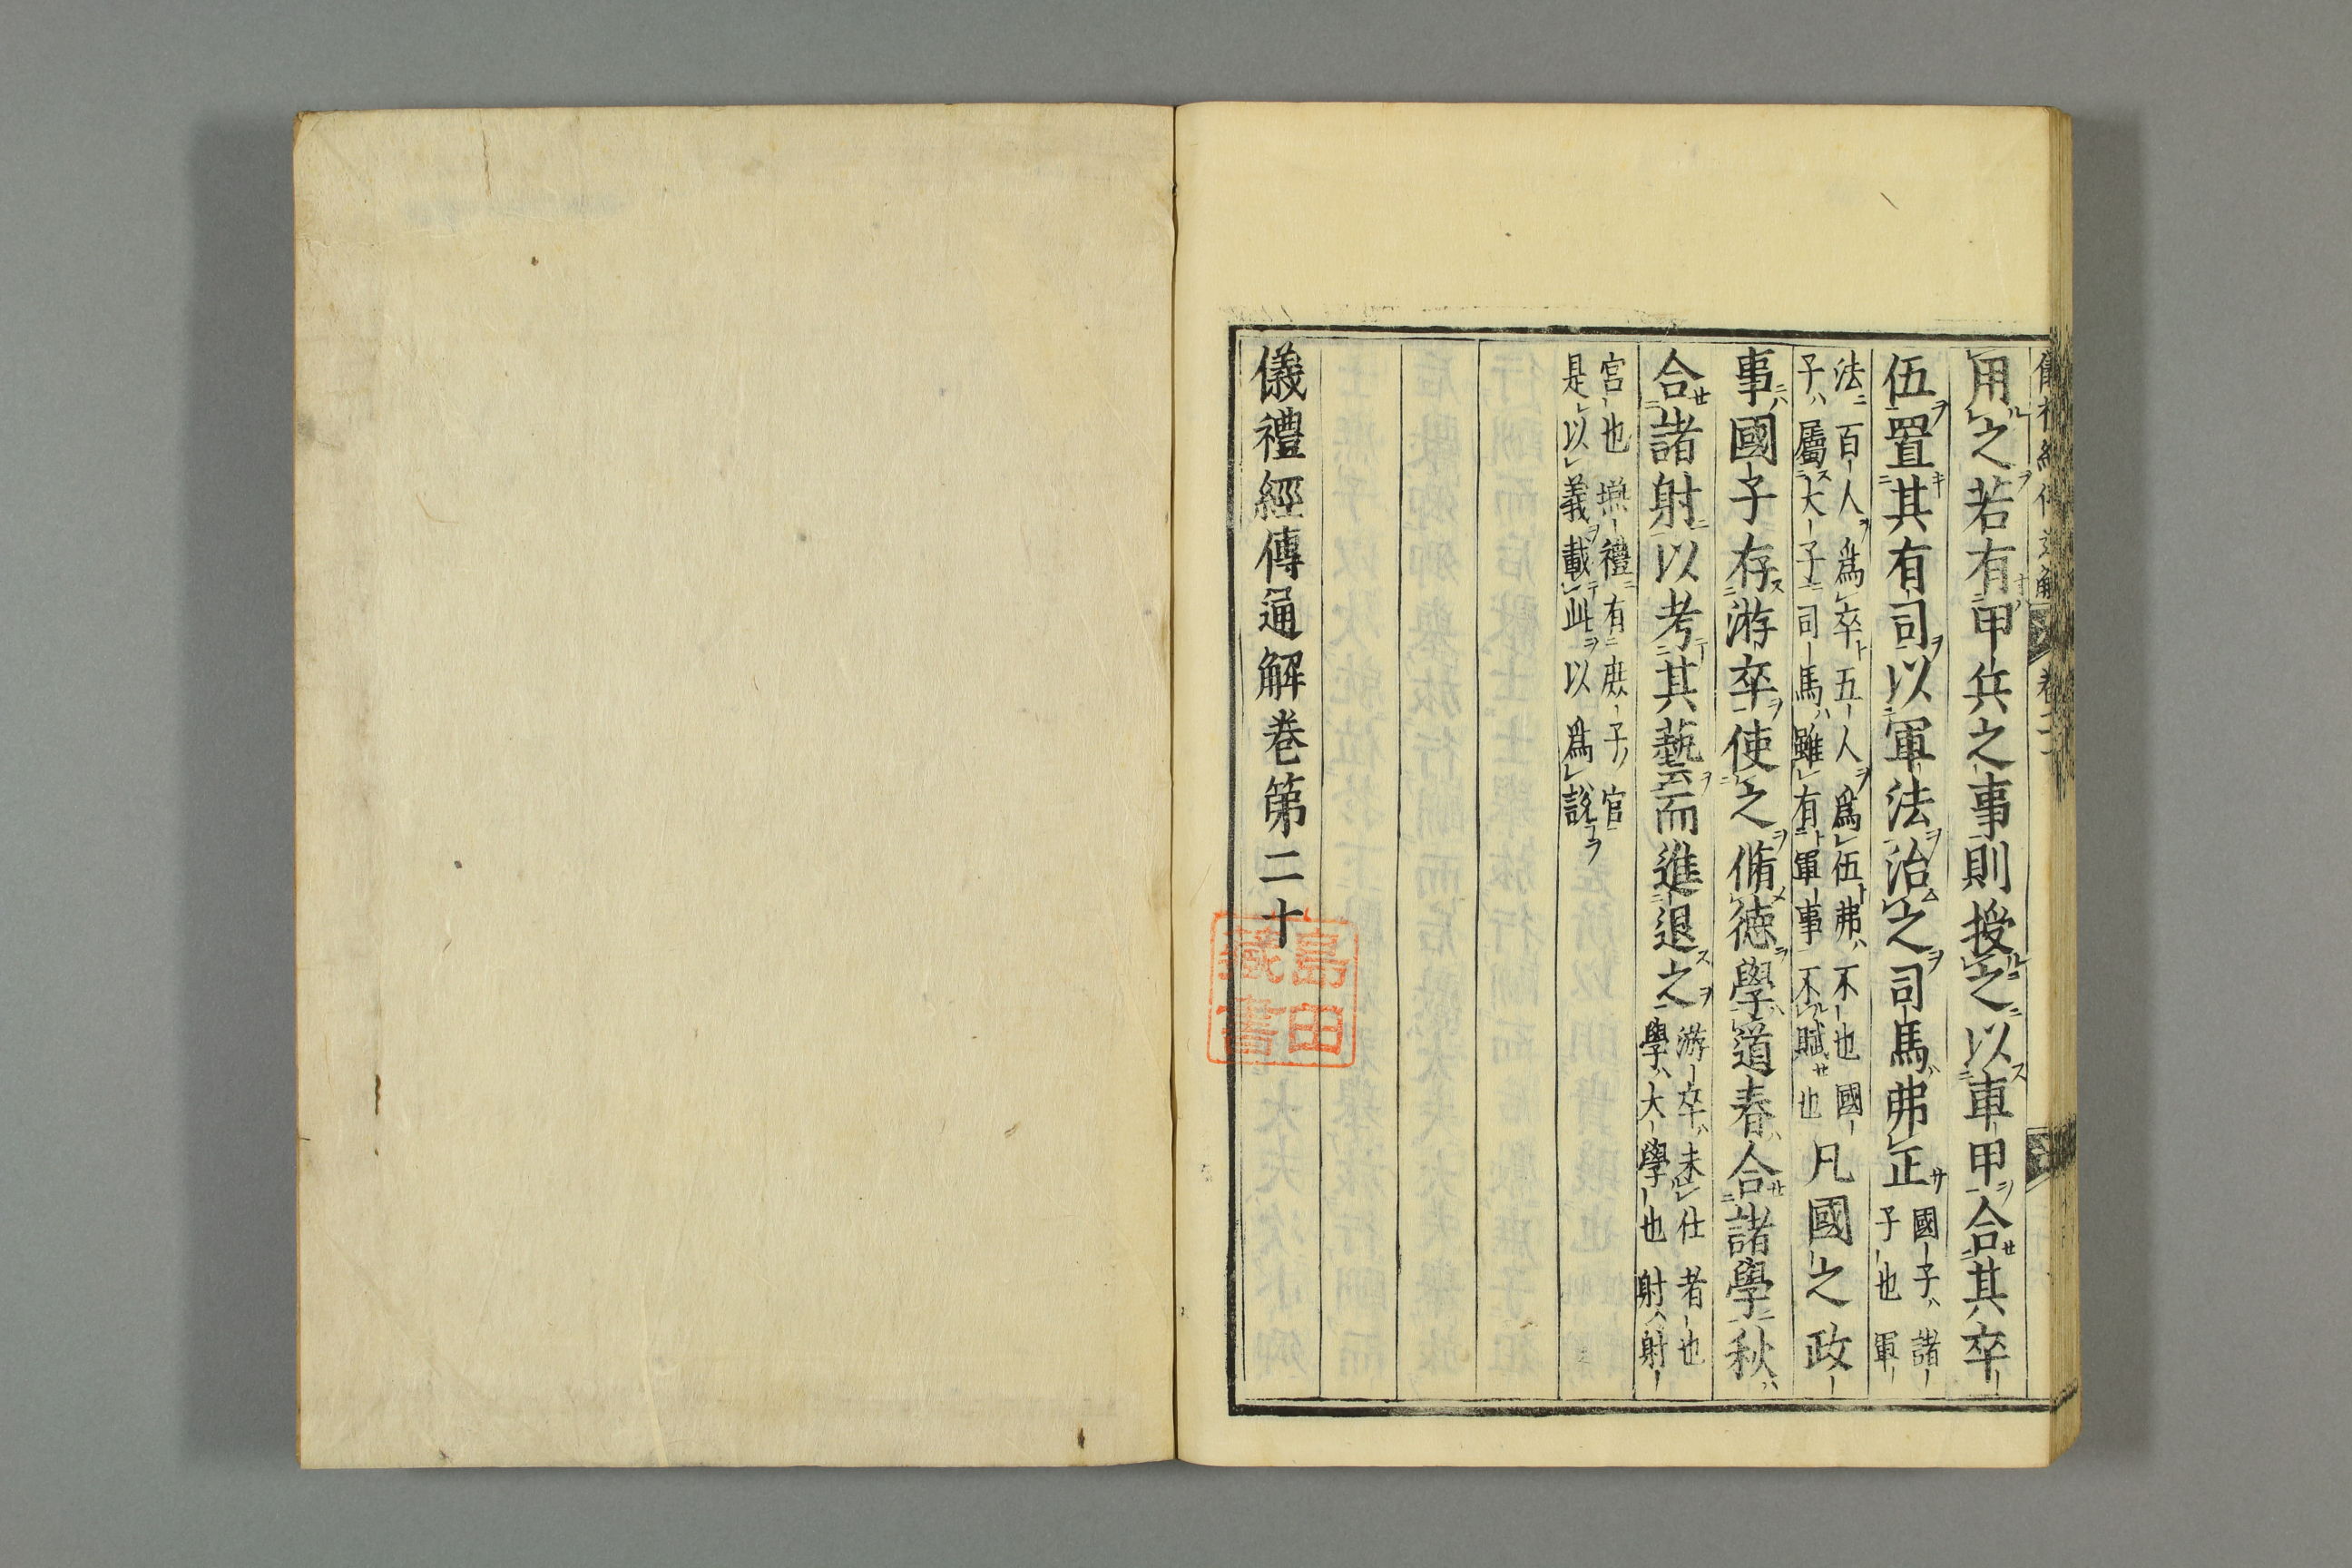 用之若有甲兵之事則授之以車甲合其卒
伍置其有司以軍法治之司馬弗正
國子諸
子也軍
法百人爲卒五人爲伍弗不也國
子屬大子司馬雖有軍事不賦也
凡國之政
事國子存游卒使之脩德學道春合諸學秋
合諸射以考其藝而進退之
游卒未仕者也
學大學也射射
宮也燕禮有庶子官
是以義載此以爲說
儀禮經傳通解卷第二十
島田
藏書